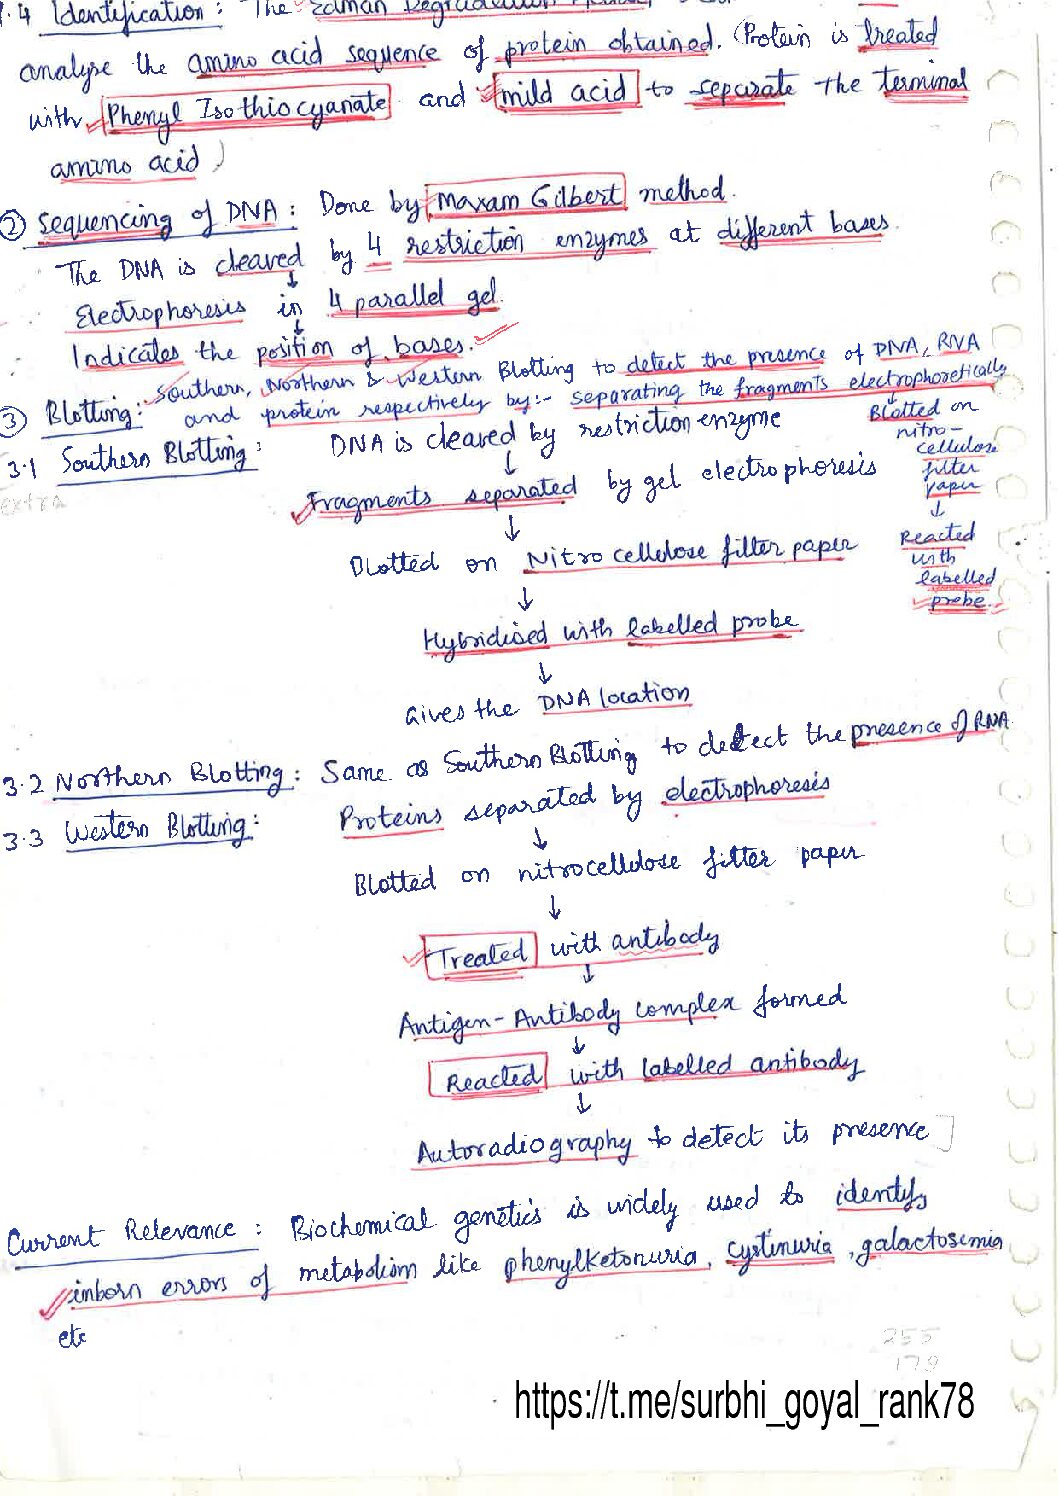 1.4 Identification : The Edman Degradation
analyse the amino acid sequence of protein obtained. (Protein is treated
with Phenyl Isothiocyanate and mild acid to separate the terminal
amino acid)
② Sequencing of DNA : Done by Maxam Gilbert method.
The DNA is cleaved by 4 restriction enzymes at different bases.
↓
Electrophoresis in 4 parallel gel.
↓
Indicates the position of bases.
③ Blotting: Southern, Northern & Western Blotting to detect the presence of DNA, RNA
and protein respectively by:- separating the fragments electrophoretically
↓
Blotted on
nitro-
cellulose
filter
paper
↓
Reacted
with
labelled
probe.
3.1 Southern Blotting : DNA is cleaved by restriction enzyme
extra
↓
Fragments separated by gel electrophoresis
↓
Blotted on Nitro cellulose filter paper
↓
Hybridised with labelled probe
↓
Gives the DNA location
3.2 Northern Blotting : Same as Southern Blotting to detect the presence of RNA
3.3 Western Blotting : Proteins separated by electrophoresis
↓
Blotted on nitrocellulose filter paper
↓
Treated with antibody
↓
Antigen-Antibody complex formed
↓
Reacted with labelled antibody
↓
Autoradiography to detect its presence ]
Current Relevance : Biochemical genetics is widely used to identify
inborn errors of metabolism like phenylketonuria, cystinuria, galactosemia
etc
255
179
https://t.me/surbhi_goyal_rank78